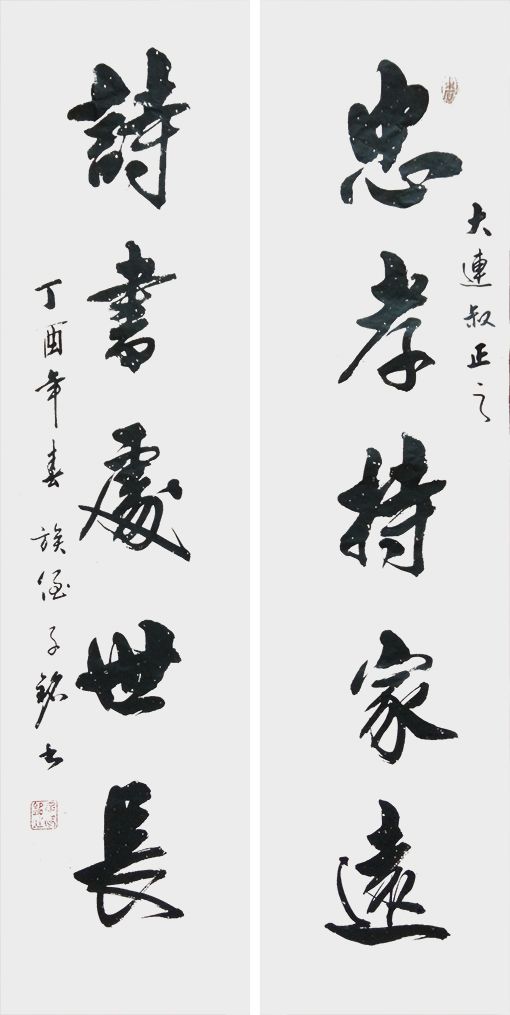 大連叔正之
忠孝持家遠
詩書處世長
丁酉年春 族侄子銘書